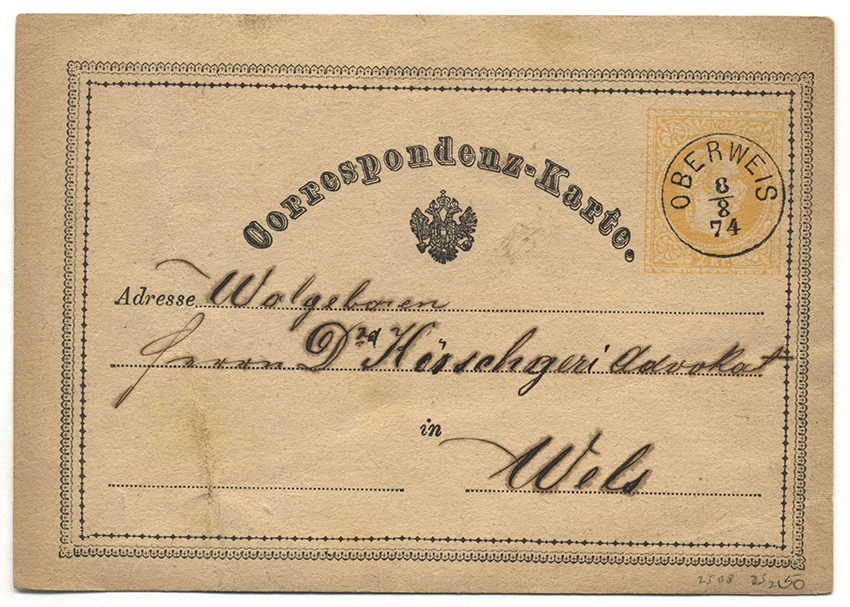 Correspondenz-Karte.
OBERWEIS
6
8
74
Adresse Wolgeboren
Herrn Dr. Hörschgeri Advokat
in
Wels
2508 25 2150